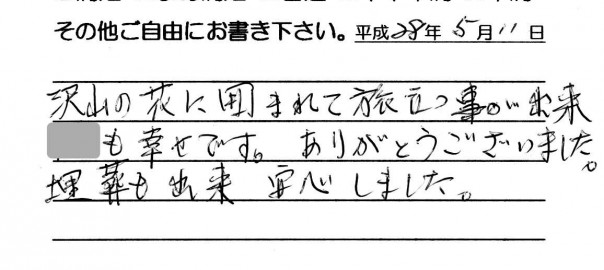 その他ご自由にお書き下さい。平成28年5月11日
沢山の花に囲まれて旅立つ事が出来
も幸せです。ありがとうございました。
埋葬も出来 安心しました。